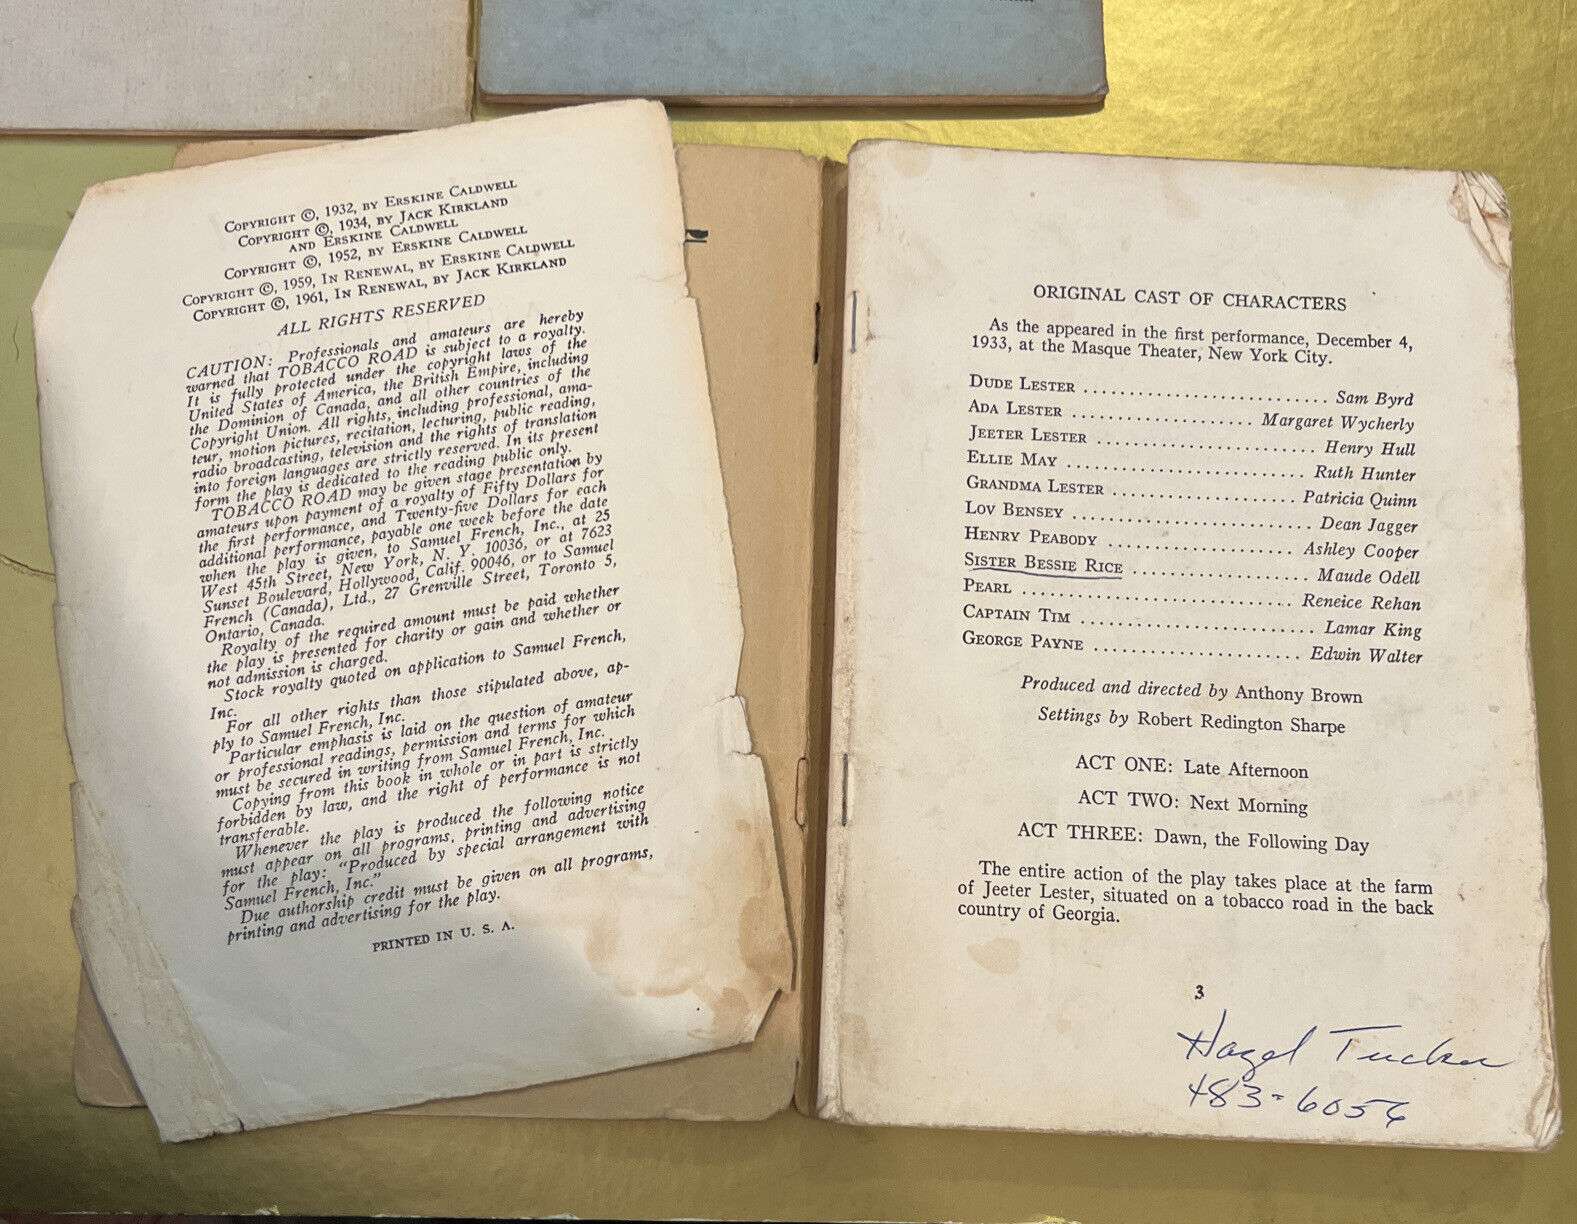 COPYRIGHT ©, 1932, BY ERSKINE CALDWELL
COPYRIGHT ©, 1934, BY JACK KIRKLAND
AND ERSKINE CALDWELL
COPYRIGHT ©, 1952, BY ERSKINE CALDWELL
COPYRIGHT ©, 1959, IN RENEWAL, BY ERSKINE CALDWELL
COPYRIGHT ©, 1961, IN RENEWAL, BY JACK KIRKLAND
ALL RIGHTS RESERVED
CAUTION: Professionals and amateurs are hereby
warned that TOBACCO ROAD is subject to a royalty.
It is fully protected under the copyright laws of the
United States of America, the British Empire, including
the Dominion of Canada, and all other countries of the
Copyright Union. All rights, including professional, ama-
teur, motion pictures, recitation, lecturing, public reading,
radio broadcasting, television and the rights of translation
into foreign languages are strictly reserved. In its present
form the play is dedicated to the reading public only.
TOBACCO ROAD may be given stage presentation by
amateurs upon payment of a royalty of Fifty Dollars for
the first performance, and Twenty-five Dollars for each
additional performance, payable one week before the date
when the play is given, to Samuel French, Inc., at 25
West 45th Street, New York, N. Y. 10036, or at 7623
Sunset Boulevard, Hollywood, Calif. 90046, or to Samuel
French (Canada), Ltd., 27 Grenville Street, Toronto 5,
Ontario, Canada.
Royalty of the required amount must be paid whether
the play is presented for charity or gain and whether or
not admission is charged.
Stock royalty quoted on application to Samuel French,
Inc.
For all other rights than those stipulated above, ap-
ply to Samuel French, Inc.
Particular emphasis is laid on the question of amateur
or professional readings, permission and terms for which
must be secured in writing from Samuel French, Inc.
Copying from this book in whole or in part is strictly
forbidden by law, and the right of performance is not
transferable.
Whenever the play is produced the following notice
must appear on all programs, printing and advertising
for the play: "Produced by special arrangement with
Samuel French, Inc."
Due authorship credit must be given on all programs,
printing and advertising for the play.
PRINTED IN U. S. A.
ORIGINAL CAST OF CHARACTERS
As the appeared in the first performance, December 4,
1933, at the Masque Theater, New York City.
DUDE LESTER ........................... Sam Byrd
ADA LESTER .................... Margaret Wycherly
JEETER LESTER ........................ Henry Hull
ELLIE MAY ........................... Ruth Hunter
GRANDMA LESTER .................... Patricia Quinn
LOV BENSEY .......................... Dean Jagger
HENRY PEABODY .................... Ashley Cooper
SISTER BESSIE RICE .................. Maude Odell
PEARL ............................. Reneice Rehan
CAPTAIN TIM ......................... Lamar King
GEORGE PAYNE ...................... Edwin Walter
Produced and directed by Anthony Brown
Settings by Robert Redington Sharpe
ACT ONE: Late Afternoon
ACT TWO: Next Morning
ACT THREE: Dawn, the Following Day
The entire action of the play takes place at the farm
of Jeeter Lester, situated on a tobacco road in the back
country of Georgia.
3
Hazel Tucker
483-6056